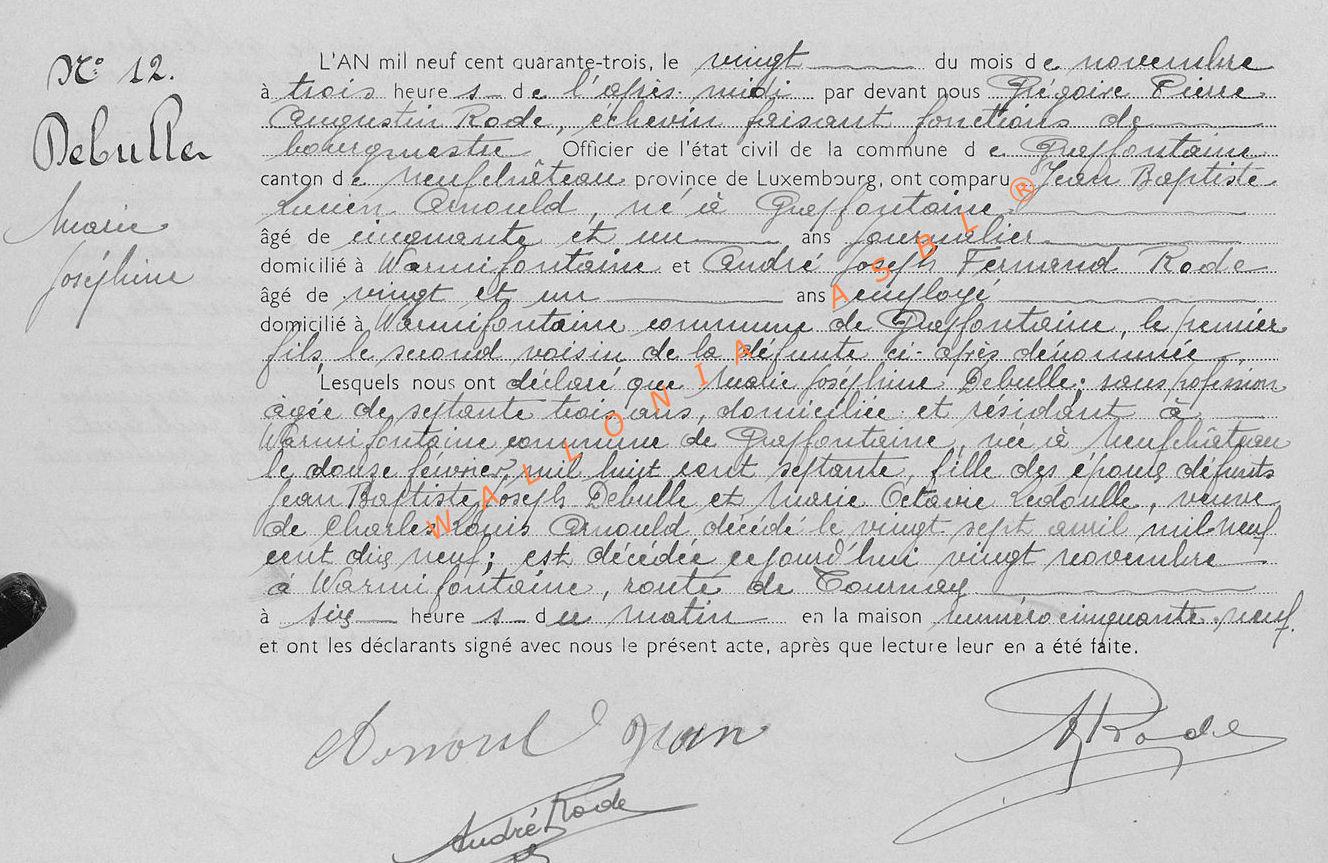 N° 12.
Debulle
Marie
Joséphine
L'AN mil neuf cent quarante-trois, le vingt du mois de novembre
à trois heures de l'après-midi par devant nous Grégoire Pierre
Augustin Rode, échevin faisant fonctions de
bourgmestre Officier de l'état civil de la commune de Grapfontaine
canton de Neufchâteau province de Luxembourg, ont comparu Jean Baptiste
Lucien Arnould, né à Grapfontaine
âgé de cinquante et un ans journalier
domicilié à Warmifontaine et André Joseph Fernand Rode
âgé de vingt et un ans employé
domicilié à Warmifontaine commune de Grapfontaine, le premier
fils, le second voisin de la défunte ci-après dénommée,
Lesquels nous ont déclaré que Marie Joséphine Debulle, sans profession
âgée de septante trois ans, domiciliée et résidant à
Warmifontaine commune de Grapfontaine, née à Neufchâteau
le douze février mil huit cent septante, fille des époux défunts
Jean Baptiste Joseph Debulle et Marie Octavie Ledoulle, veuve
de Charles Louis Arnould décédé le vingt sept avril mil neuf
cent dix neuf; est décédée cejourd'hui vingt novembre
à Warmifontaine, route de Tournay
à six heures du matin en la maison numéro cinquante-neuf.
et ont les déclarants signé avec nous le présent acte, après que lecture leur en a été faite.
Arnoul Jean
ARode
André Rode
WALLONIA ASBL ®